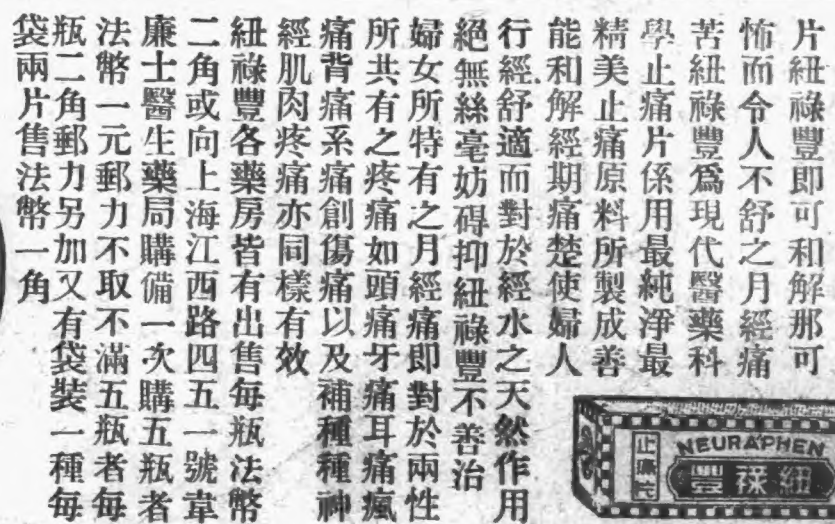 片紐祿豐即可和解那可
怖而令人不舒之月經痛
苦紐祿豐爲現代醫藥科
學止痛片係用最純淨最
精美止痛原料所製成善
能和解經期痛楚使婦人
行經舒適而對於經水之天然作用
絕無絲毫妨碍抑紐祿豐不善治
婦女所特有之月經痛即對於兩性
所共有之疼痛如頭痛牙痛耳痛瘋
痛背痛系痛創傷痛以及補種種神
經肌肉疼痛亦同樣有效
紐祿豐各藥房皆有出售每瓶法幣
二角或向上海江西路四五一號韋
廉士醫生藥局購備一次購五瓶者
法幣一元郵力不取不滿五瓶者每
瓶二角郵力另加又有袋裝一種每
袋兩片售法幣一角
NEURAPHEN
紐祿豐
止痛片